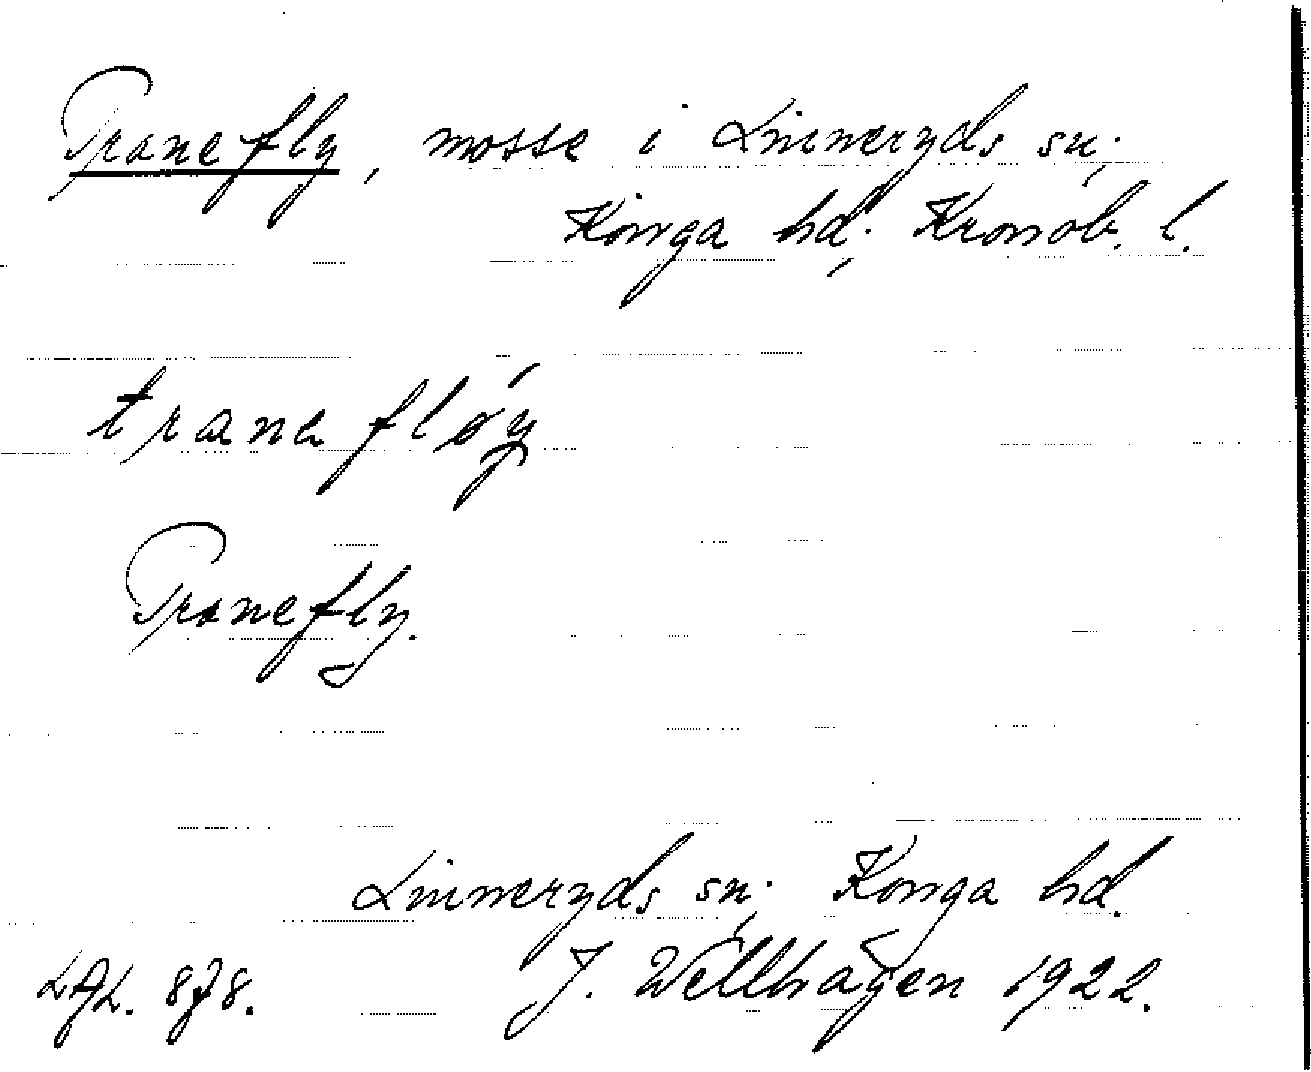 Tranefly, mosse i Linneryds sn;
Konga hd; Kronob. l.
tranefløy
Tranefly.
Linneryds sn; Konga hd.
LAL. 878. J. Wellhagen 1922.